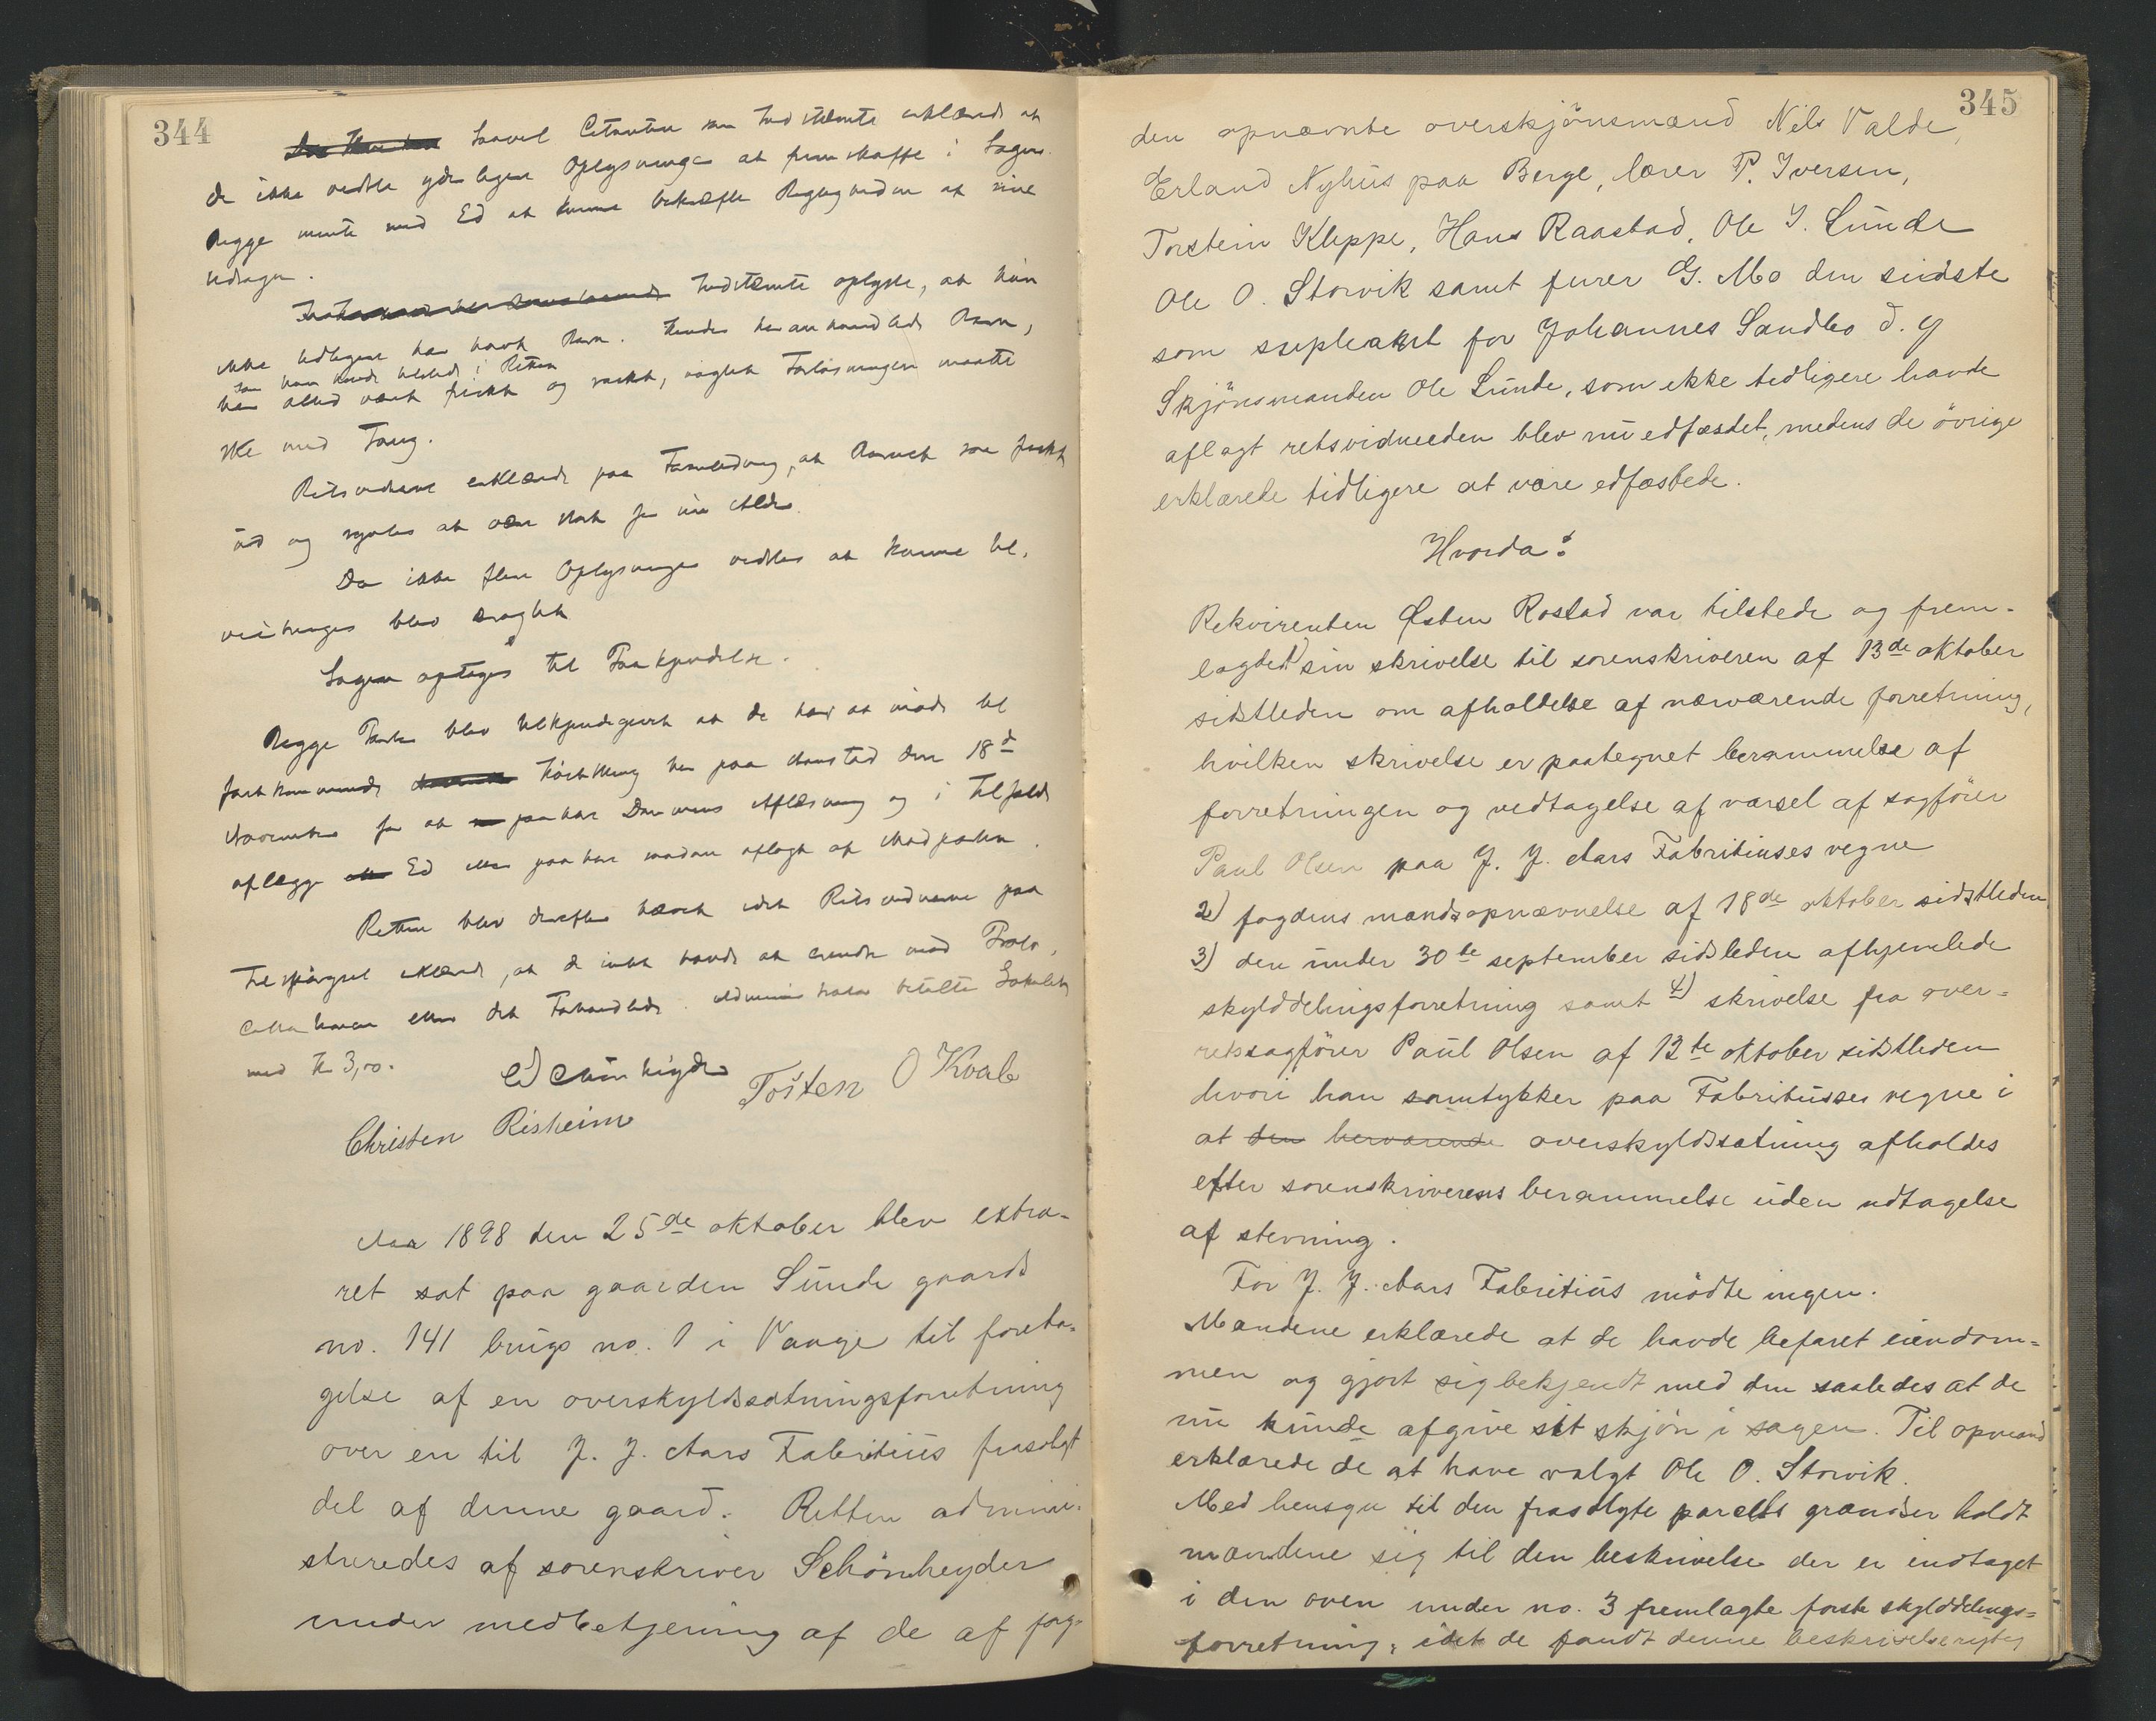 344
Saavel Citanten som Indstevnte erklærede at
de ikke vidste yderligere Oplysninger at fremskaffe i Sagen.
Begge mente med Ed at kunne bekræfte Rigtigheden af sine
Udsagn.
Indstevnte oplyste, at hun
ikke tidligere har havt Barn. Hendes heromhandlede Barn,
som hun havde tilstede i Retten
har altid været friskt og raskt, uagtet Forløsningen maatte
ske med Tang.
Retsvidnerne erklærede paa Foranledning, at Barnet saa friskt
ud og syntes at være stort for sin Alder.
Da ikke flere Oplysninger vidstes at kunne til-
veiebringes blev sagt
Sagen optages til Paakjendelse.
Begge Parter blev tilkjendegivet at de har at møde til
førstkommende her paa den 18de
November for at paahøre Dommens Aflæsning og i Tilfælde
aflægge Ed eller paahøre saadan aflagt af Modparten.
Retten blev derefter hævet idet Retsvidnerne paa
Tilspørgsel erklærede, at de intet havde at erindre mod Proto-
collationen eller det Forhandlede. Administrator betalte Lokalet
med Kr 3,00.
E Schönheyder
Torsten O Kvale
Christen Risheim
Aar 1898 den 25de oktober blev extra-
ret sat paa gaarden Sunde gaards
no. 141 brugs no. 1 i Vaage til foreta-
gelse af en overskyldsætningsforretning
over en til J. J. Aars Fabritius frasolgt
del af denne gaard. Retten admini-
streredes af sorenskriver Schönheyder
under medbetjening af de af fog-
345
den opnævnte overskjönsmænd Nils Valde,
Erland Nyhus paa Berge, lærer P. Iversen,
Torstein Kleppe, Hans Raastad, Ole I. Sunde
Ole O. Storvik samt furer G. Mo den sidste
som supleant for Johannes Sandbo d. y
Skjönsmanden Ole Sunde, som ikke tidligere havde
aflagt retsvidneeden blev nu edfæstet, medens de övrige
erklærede tidligere at være edfæstede.
Hvorda:
Rekvirenten Østen Rostad var tilstede og frem-
lagde 1) sin skrivelse til sorenskriveren af 13de oktober
sidstleden om afholdelse af nærværende forretning,
hvilken skrivelse er paategnet berammelse af
forretningen og vedtagelse af varsel af sagförer
Paul Olsen paa J. J. Aars Fabritiuses vegne
2) fogdens mandsopnævnelse af 18de oktober sidstleden
3) den under 30te september sidstleden afhjemlede
skylddelingsforretning samt 4) skrivelse fra over-
retssagförer Paul Olsen af 12te oktober sidstleden
hvori han samtykker paa Fabritiusses vegne i
at den herværende overskyldsætning afholdes
efter sorenskriverens berammelse uden udtagelse
af stevning.
For J. J. Aars Fabritius mödte ingen.
Mændene erklærede at de havde befaret eiendom-
men og gjort sig bekjendt med den saaledes at de
nu kunde afgive sit skjön i sagen. Til opmand
erklærede de at have valgt Ole O. Storvik.
Med hensyn til den frasolgte parcels grændser holdt
mændene sig til den beskrivelse der er indtaget
i den oven under no. 3 fremlagte første skylddelings-
forretning, idet de fandt denne beskrivelse rigtig